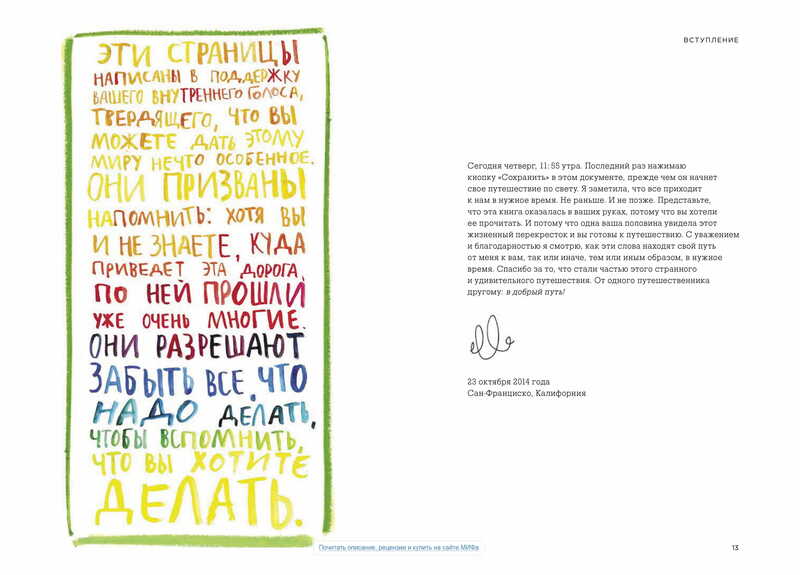 ЭТИ СТРАНИЦЫ
НАПИСАНЫ В ПОДДЕРЖКУ
ВАШЕГО ВНУТРЕННЕГО ГОЛОСА,
ТВЕРДЯЩЕГО, ЧТО ВЫ
МОЖЕТЕ ДАТЬ ЭТОМУ
МИРУ НЕЧТО ОСОБЕННОЕ.
ОНИ ПРИЗВАНЫ
НАПОМНИТЬ: ХОТЯ ВЫ
И НЕ ЗНАЕТЕ, КУДА
ПРИВЕДЕТ ЭТА ДОРОГА,
ПО НЕЙ ПРОШЛИ
УЖЕ ОЧЕНЬ МНОГИЕ.
ОНИ РАЗРЕШАЮТ
ЗАБЫТЬ ВСЕ, ЧТО
НАДО ДЕЛАТЬ,
ЧТОБЫ ВСПОМНИТЬ,
ЧТО ВЫ ХОТИТЕ
ДЕЛАТЬ.
ВСТУПЛЕНИЕ
Сегодня четверг, 11: 55 утра. Последний раз нажимаю
кнопку «Сохранить» в этом документе, прежде чем он начнет
свое путешествие по свету. Я заметила, что все приходит
к нам в нужное время. Не раньше. И не позже. Представьте,
что эта книга оказалась в ваших руках, потому что вы хотели
ее прочитать. И потому что одна ваша половина увидела этот
жизненный перекресток и вы готовы к путешествию. С уважением
и благодарностью я смотрю, как эти слова находят свой путь
от меня к вам, так или иначе, тем или иным образом, в нужное
время. Спасибо за то, что стали частью этого странного
и удивительного путешествия. От одного путешественника
другому: в добрый путь!
elle
23 октября 2014 года
Сан-Франциско, Калифорния
Почитать описание, рецензии и купить на сайте МИФа
13